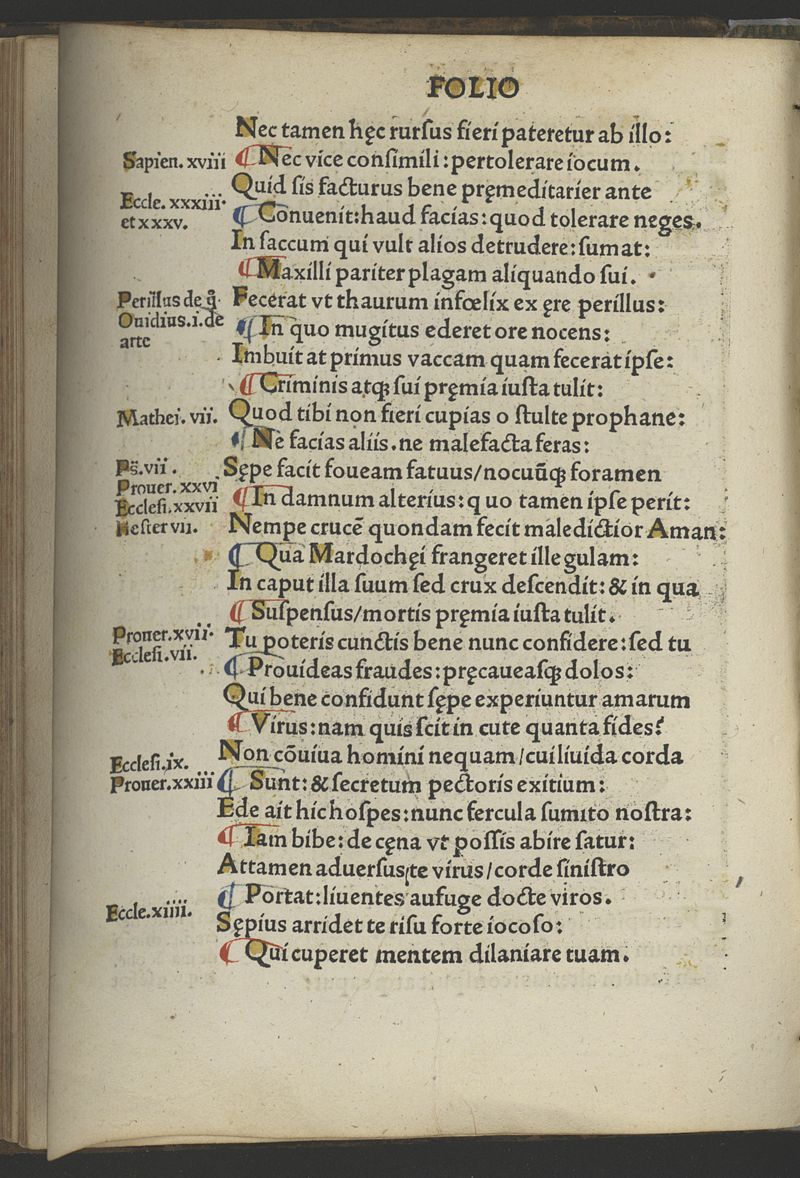 FOLIO
Nec tamen hęc rurſus fieri pateretur ab illo:
Sapien. xviii
¶ Nec vice conſimili: pertolerare iocum.
Quid ſis facturus bene pręmeditarier ante
Eccle. xxxiii.
et xxxv.
¶ Conuenit: haud facias: quod tolerare neges.
In ſaccum qui vult alios detrudere: ſumat:
¶ Maxilli pariter plagam aliquando ſui.
Perillus de q̃
Fecerat vt thaurum infœlix ex ęre perillus:
Ouidius. i. de
arte
¶ In quo mugitus ederet ore nocens:
Imbuit at primus vaccam quam fecerat ipſe:
¶ Criminis atqꝫ ſui pręmia iuſta tulit:
Mathei. vii.
Quod tibi non fieri cupias o ſtulte prophane:
¶ Ne facias aliis. ne malefacta feras:
Pš. vii.
Sępe facit foueam fatuus/nocuũqꝫ foramen
Prouer. xxvi
Eccleſi. xxvii
¶ In damnum alterius: q uo tamen ipſe perit:
Heſter vii.
Nempe crucẽ quondam fecit maledictior Aman:
¶ Qua Mardochęi frangeret ille gulam:
In caput illa ſuum ſed crux deſcendit: & in qua
¶ Suſpenſus/mortis pręmia iuſta tulit.
Prouer. xvii.
Tu poteris cunctis bene nunc confidere: ſed tu
Eccleſi. vii.
¶ Prouideas fraudes: pręcaueaſqꝫ dolos:
Qui bene confidunt ſępe experiuntur amarum
¶ Virus: nam quis ſcit in cute quanta fides?
Eccleſi. ix.
Non cõuiua homini nequam/cui liuida corda
Prouer. xxiii
¶ Sunt: & ſecretum pectoris exitium:
Ede ait hic hoſpes: nunc fercula ſumito noſtra:
¶ Iam bibe: de cęna vt poſſis abire ſatur:
Attamen aduerſus te virus/corde ſiniſtro
¶ Portat: liuentes aufuge docte viros.
Eccle. xiiii.
Sępius arridet te riſu forte iocoſo:
¶ Qui cuperet mentem dilaniare tuam.